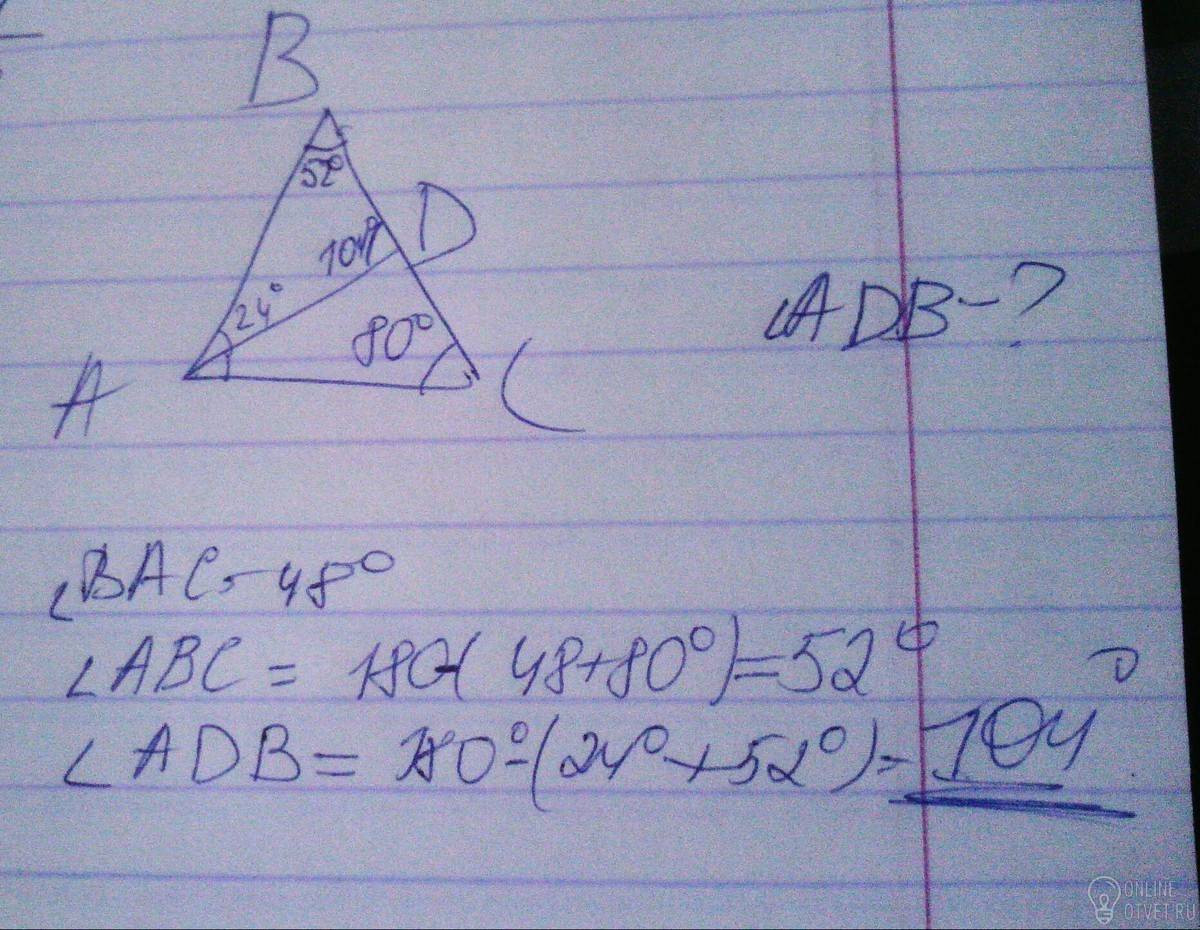 B
52°
D
104°
24°
80°
∠ADB-?
A
C
∠BAC=48°
∠ABC = 180-(48+80°)=52°
∠ADB = 180°-(24°+52°)=104°
ONLINE
OTVET.RU